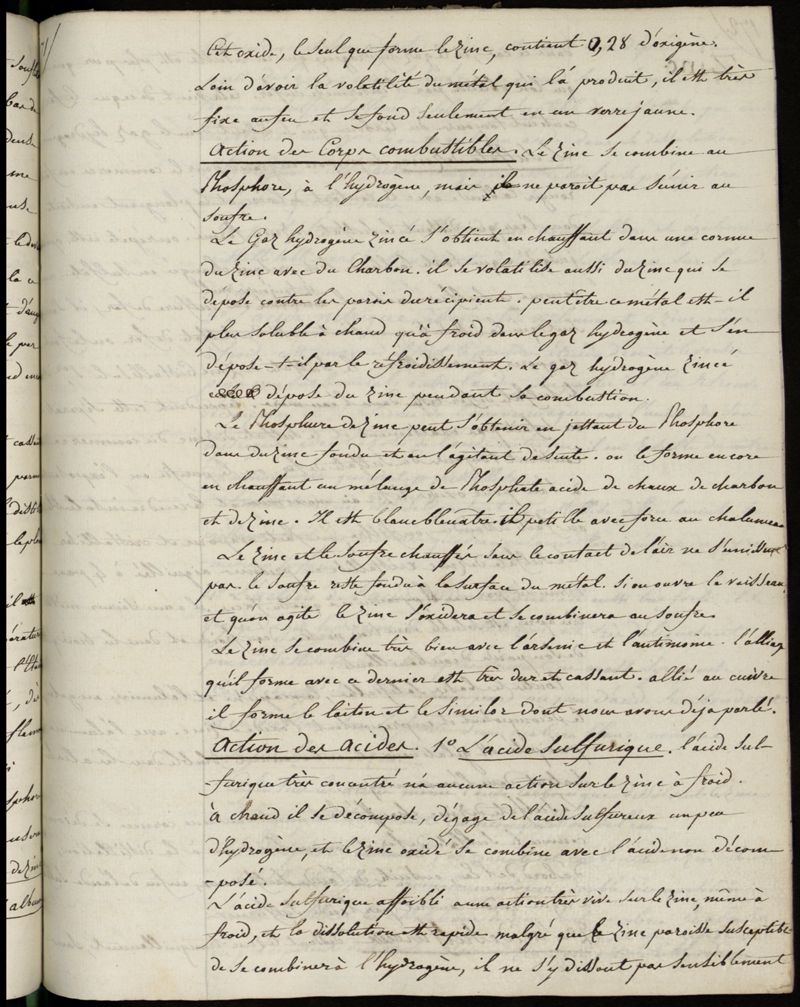 Cet oxide, le seul que forme le zinc, contient 0,28 d'oxigène.
Loin d'avoir la volatilité du métal qui l'a produit, il est très
fixe au feu et se fond seulement en un verre jaune.
Action des Corps combustibles. Le zinc se combine au
Phosphore, à l'hydrogène, mais il ne paroit pas s'unir au
soufre.
Le Gaz hydrogène zincé s'obtient en chauffant dans une cornue
du zinc avec du Charbon. il se volatilise aussi du zinc qui se
depose contre les parois du récipient. peut être ce métal est-il
plus soluble à chaud qu'à froid dans le gaz hydrogène et s'en
dépose-t-il par le réfroidissement. Le gaz hydrogène zincé
dépose du zinc pendant sa combustion.
Le Phosphure de zinc peut s'obtenir en jettant du Phosphore
dans du zinc fondu et en l'agitant de suite. on le forme encore
en chauffant un mélange de Phosphate acide de chaux de charbon
et de zinc. Il est blanc bleuatre il petille avec force au chalumeau
Le zinc et le soufre chauffés sans le contact de l'air ne s'unissent
pas. le soufre reste fondu à la surface du métal. si on ouvre le vaisseau
et qu'on agite le zinc s'oxidera et se combinera au soufre
Le zinc se combine très bien avec l'arsenic et l'antimoine. l'alliage
qu'il forme avec ce dernier est très dur et cassant. allié au cuivre
il forme le laiton et le similor dont nous avons déja parlé.
Action des acides. 1º L'acide Sulfurique. l'acide sul-
-furique très concentré n'a aucune action sur le zinc à froid.
à chaud il se décompose, dégage de l'acide sulfureux un peu
d'hydrogène, et le zinc oxidé se combine avec l'acide non décom-
-posé.
L'acide sulfurique affoibli a une action très vive sur le zinc, même à
froid, et la dissolution est rapide malgré que le zinc paroisse susceptible
de se combiner à l'hydrogène, il ne s'y dissout pas sensiblement